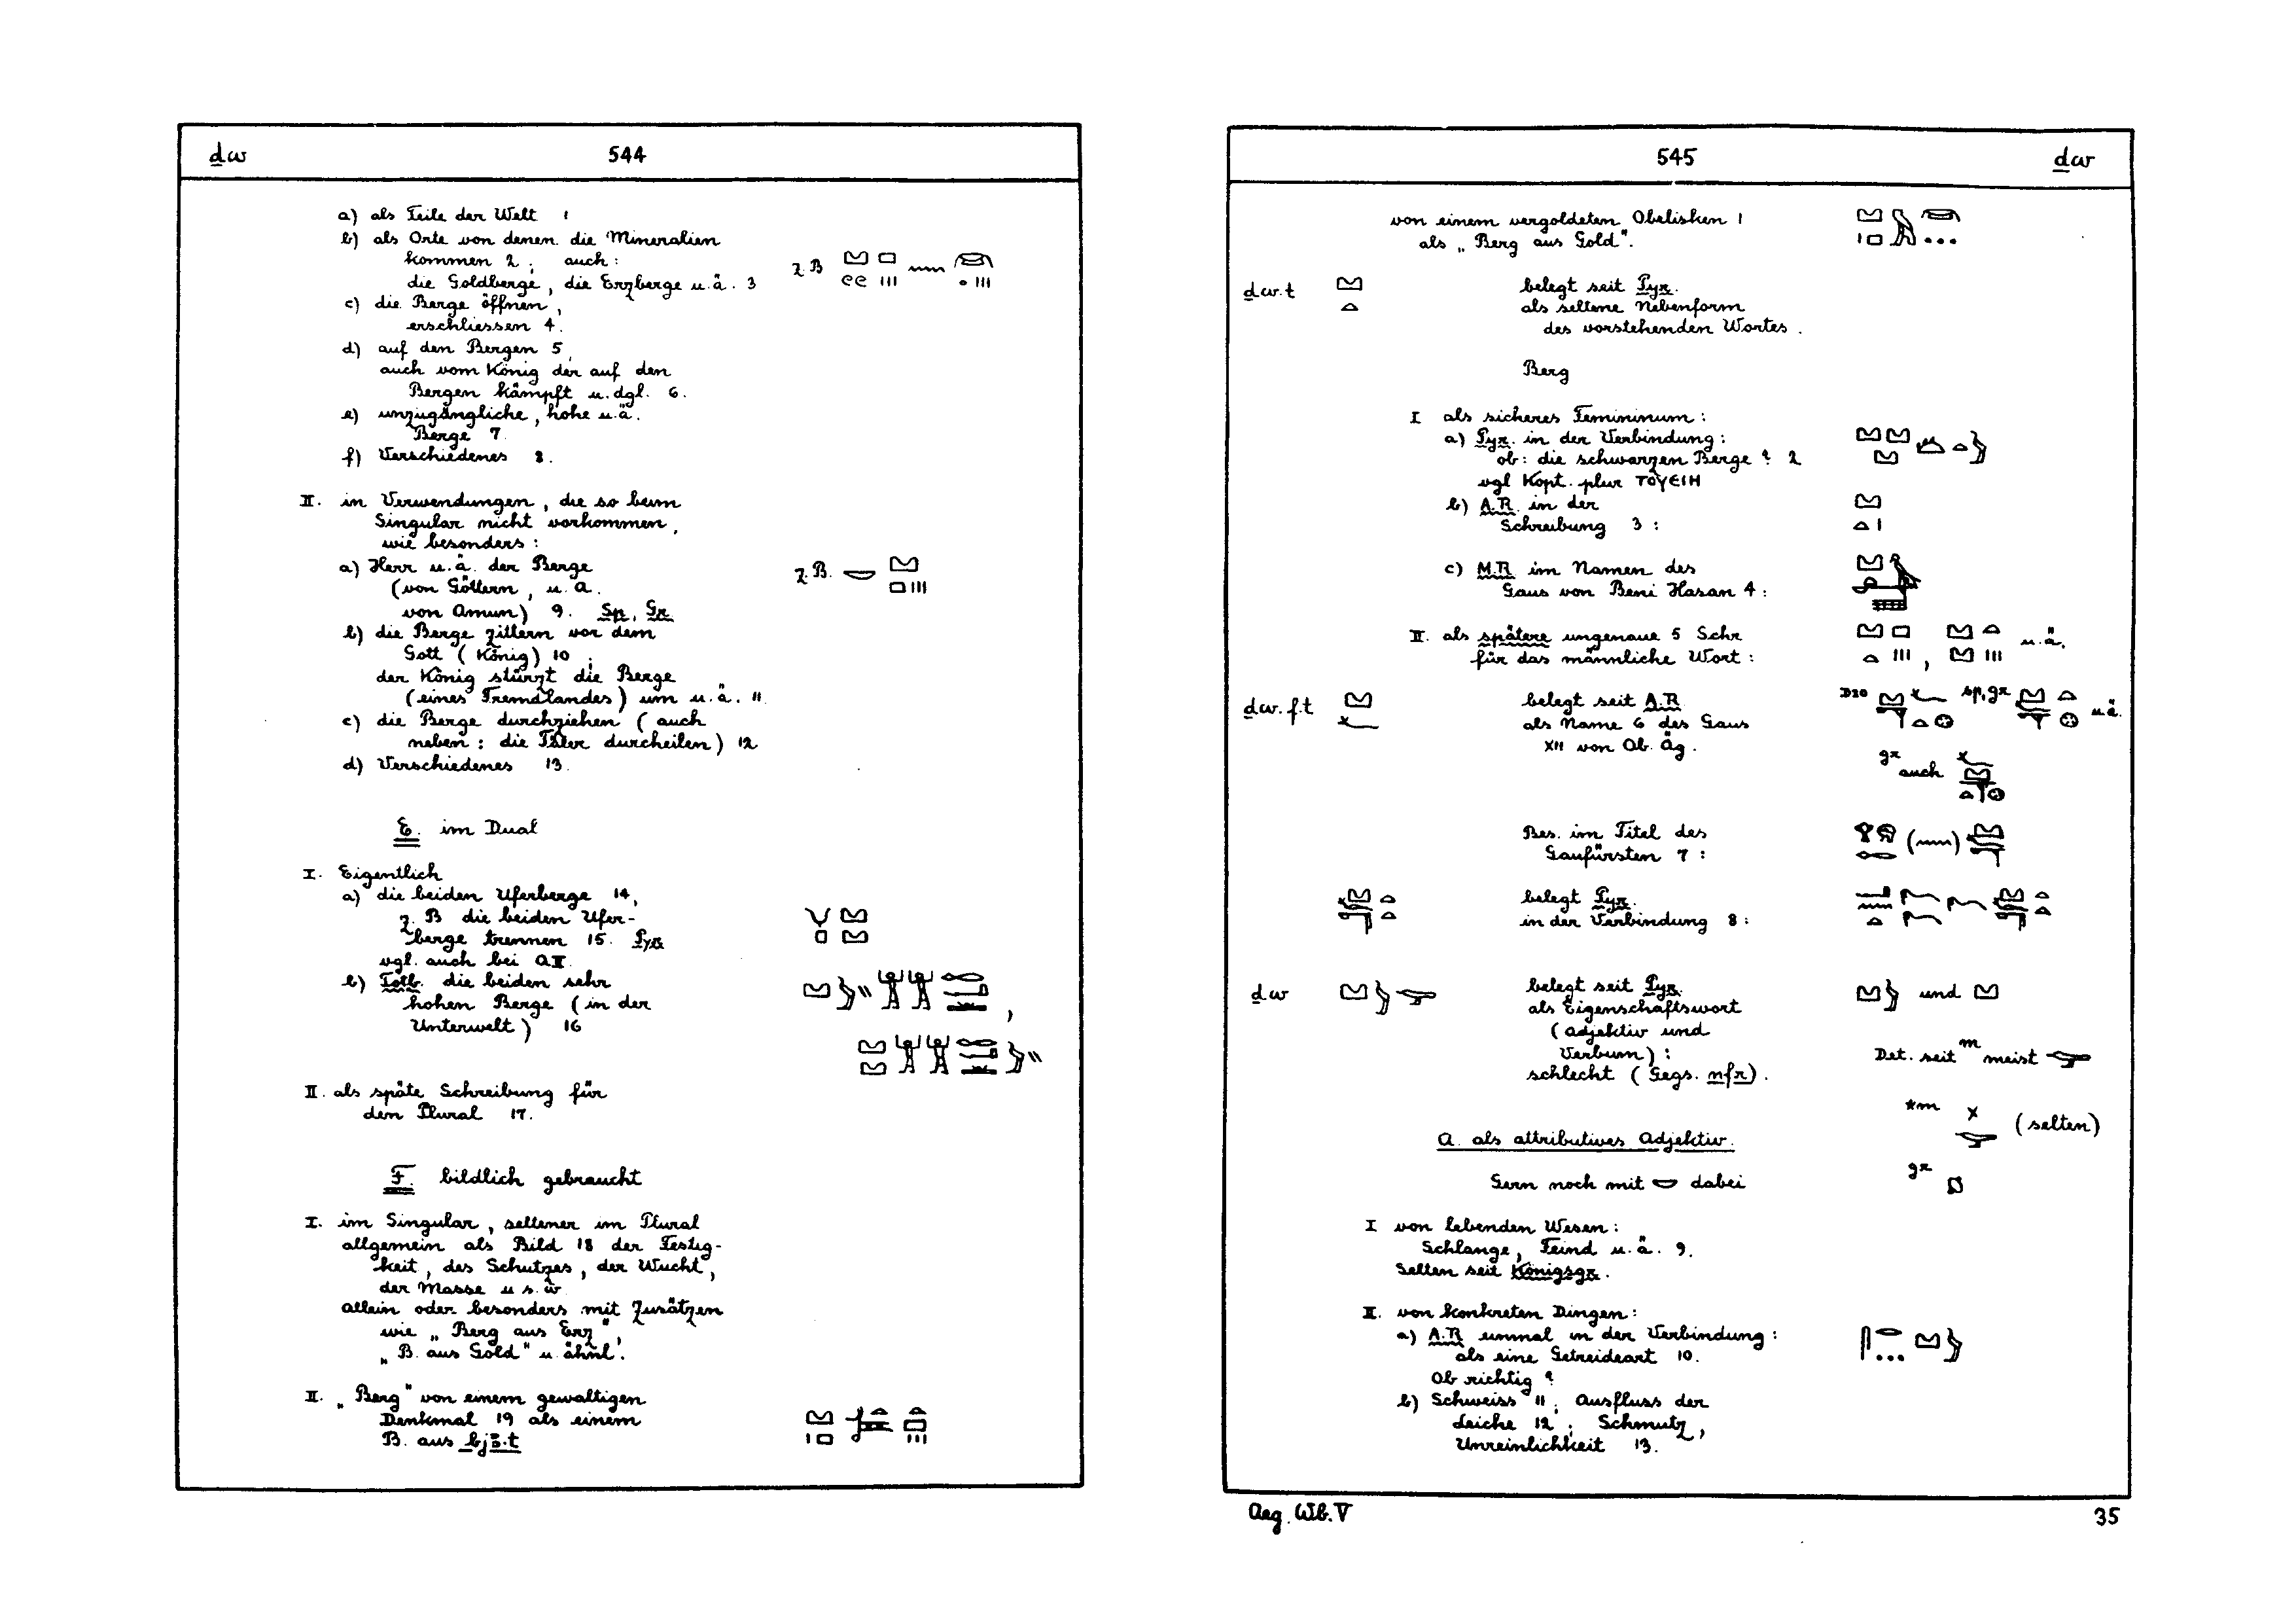 ḏw
544
a) als Teile der Welt 1
b) als Orte von denen die Mineralien
kommen 2; auch:
die Goldberge, die Erzberge u.ä. 3
z.B
c) die Berge öffnen,
erschliessen 4.
d) auf den Bergen 5,
auch vom König der auf den
Bergen kämpft u.dgl. 6.
e) unzugängliche, hohe u.ä.
Berge 7.
f) Verschiedenes 8.
II. in Verwendungen, die so beim
Singular nicht vorkommen,
wie besonders:
a) Herr u.ä. der Berge
(von Göttern, u. a.
von Amun) 9. Sp, Gr.
z.B.
b) die Berge zittern vor dem
Gott (König) 10;
der König stürzt die Berge
(eines Fremdlandes) um u.ä. 11
c) die Berge durchziehen (auch
neben: die Täler durcheilen) 12
d) Verschiedenes 13.
E. im Dual
I. Eigentlich
a) die beiden Uferberge 14,
z.B die beiden Ufer-
berge trennen 15. Pyr
vgl. auch bei A II.
b) Totb. die beiden sehr
hohen Berge (in der
Unterwelt) 16
II. als späte Schreibung für
den Plural 17.
F. bildlich gebraucht
I. im Singular, seltener im Plural
allgemein als Bild 18 der Festig-
keit, des Schutzes, der Wucht,
der Masse u s.w
allein oder besonders mit Zusätzen
wie „Berg aus Erz",
„B. aus Gold" u. ähnl.
II. „Berg" von einem gewaltigen
Denkmal 19 als einem
B. aus bjꜣ.t
545
ḏw
von einem vergoldeten Obelisken 1
als „Berg aus Gold".
ḏw.t
belegt seit Pyr.
als seltene Nebenform
des vorstehenden Wortes.
Berg
I als sicheres Femininum:
a) Pyr. in der Verbindung:
ob: die schwarzen Berge? 2
vgl Kopt. plur ΤΟΥΕΙΗ
b) A.R. in der
Schreibung 3:
c) M.R im Namen des
Gaus von Beni Hasan 4:
II. als spätere ungenaue 5 Schr
für das männliche Wort:
u.ä.
ḏw.f.t
belegt seit A.R
als Name 6 des Gaus
XII von Ob. Äg.
D20
sp,gr
u.ä.
gr auch
Bes. im Titel des
Gaufürsten 7:
belegt Pyr.
in der Verbindung 8:
ḏw
belegt seit Pyr.
als Eigenschaftswort
(Adjektiv und
Verbum):
schlecht (Gegs. nfr).
und
Det. seit m meist
*m
(selten)
gr
A. als attributives Adjektiv.
Gern noch mit 𓎟 dabei
I von lebenden Wesen:
Schlange, Feind u.ä. 9.
Selten seit Königsgr.
II. von konkreten Dingen:
a) A.R einmal in der Verbindung:
als eine Getreideart 10.
Ob richtig?
b) Schweiss 11; Ausfluss der
Leiche 12; Schmutz,
Unreinlichkeit 13.
Aeg. Wb. V
35